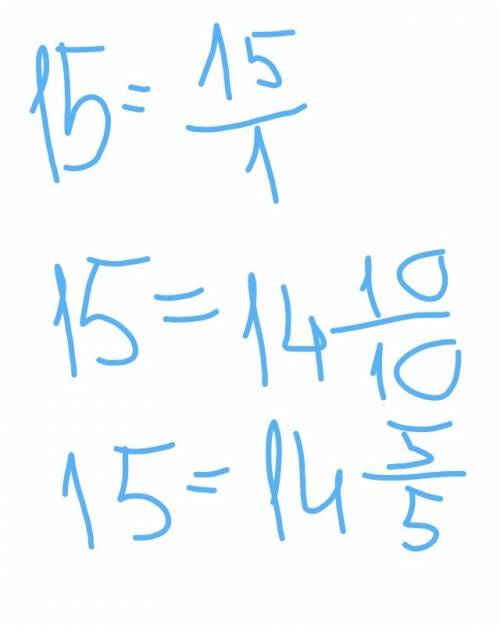 15 = 15/1
15 = 14 10/10
15 = 14 5/5